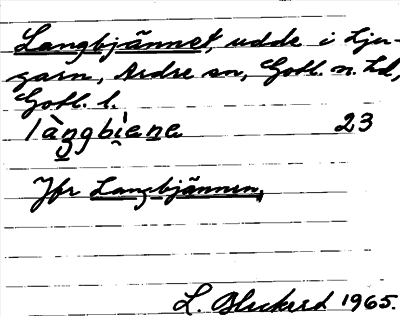 Langbjännet, udde i Lju-
garn, Ardre sn, Gotl. n. hd,
Gotl. l.
làngbìene 23
Jfr Langbjännen.
L. 1965.